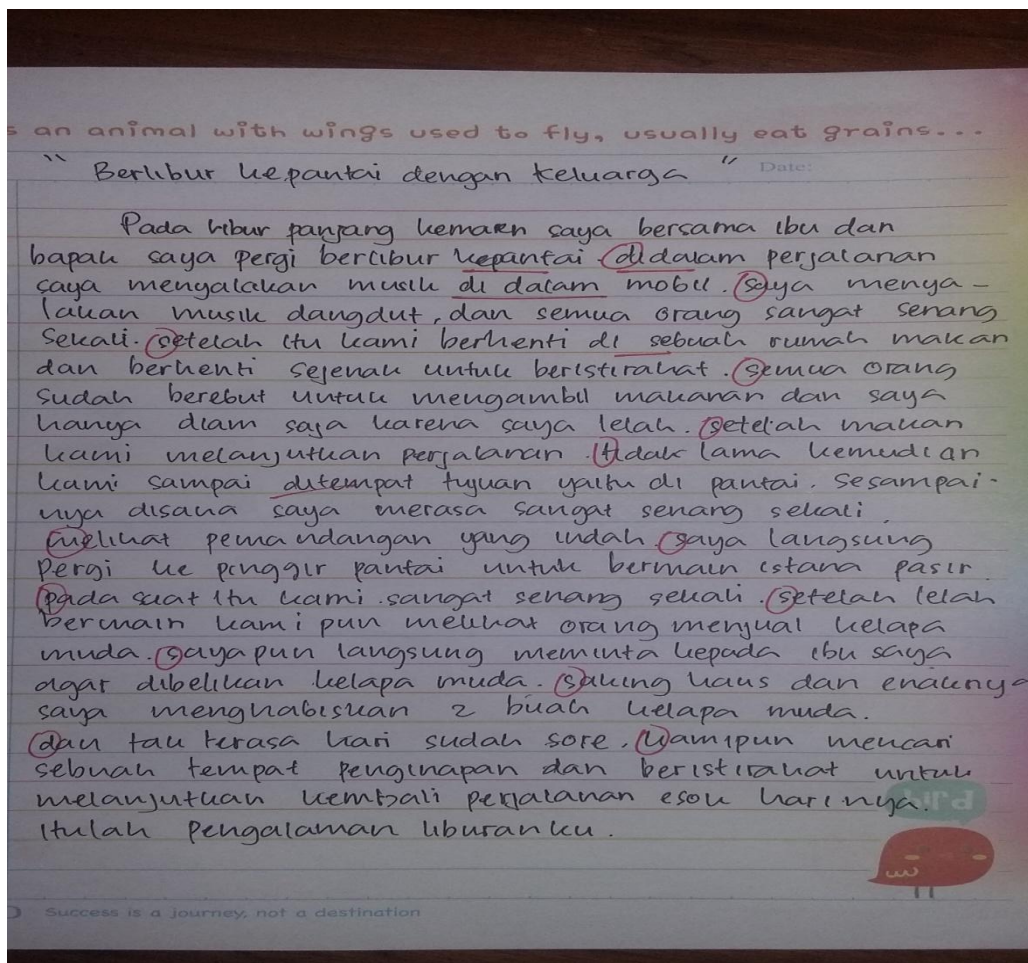 s an animal with wings used to fly, usually eat grains...
" Berlibur kepantai dengan keluarga " Date:
Pada libur panjang kemaren saya bersama ibu dan
bapak saya pergi berlibur kepantai didalam perjalanan
saya menyalakan musik di dalam mobil. saya menya-
lakan musik dangdut, dan semua orang sangat senang
Sekali. setelah itu kami berhenti di sebuah rumah makan
dan berhenti sejenak untuk beristirahat. semua orang
sudah berebut untuk mengambil makanan dan saya
hanya diam saja karena saya lelah. setelah makan
kami melanjutkan perjalanan. tidak lama kemudian
kami sampai ditempat tujuan yaitu di pantai. Sesampai-
nya disana saya merasa sangat senang sekali.
melihat pemandangan yang indah saya langsung
pergi ke pinggir pantai untuk bermain istana pasir.
pada saat itu kami sangat senang sekali. setelah lelah
bermain kami pun melihat orang menjual kelapa
muda. sayapun langsung meminta kepada ibu saya
agar dibelikan kelapa muda. saking haus dan enaknya
saya menghabiskan 2 buah kelapa muda.
dan tak terasa hari sudah sore. kamipun mencari
sebuah tempat penginapan dan beristirahat untuk
melanjutkan kembali perjalanan esok harinya.
Itulah pengalaman liburanku.
bird
Success is a journey, not a destination